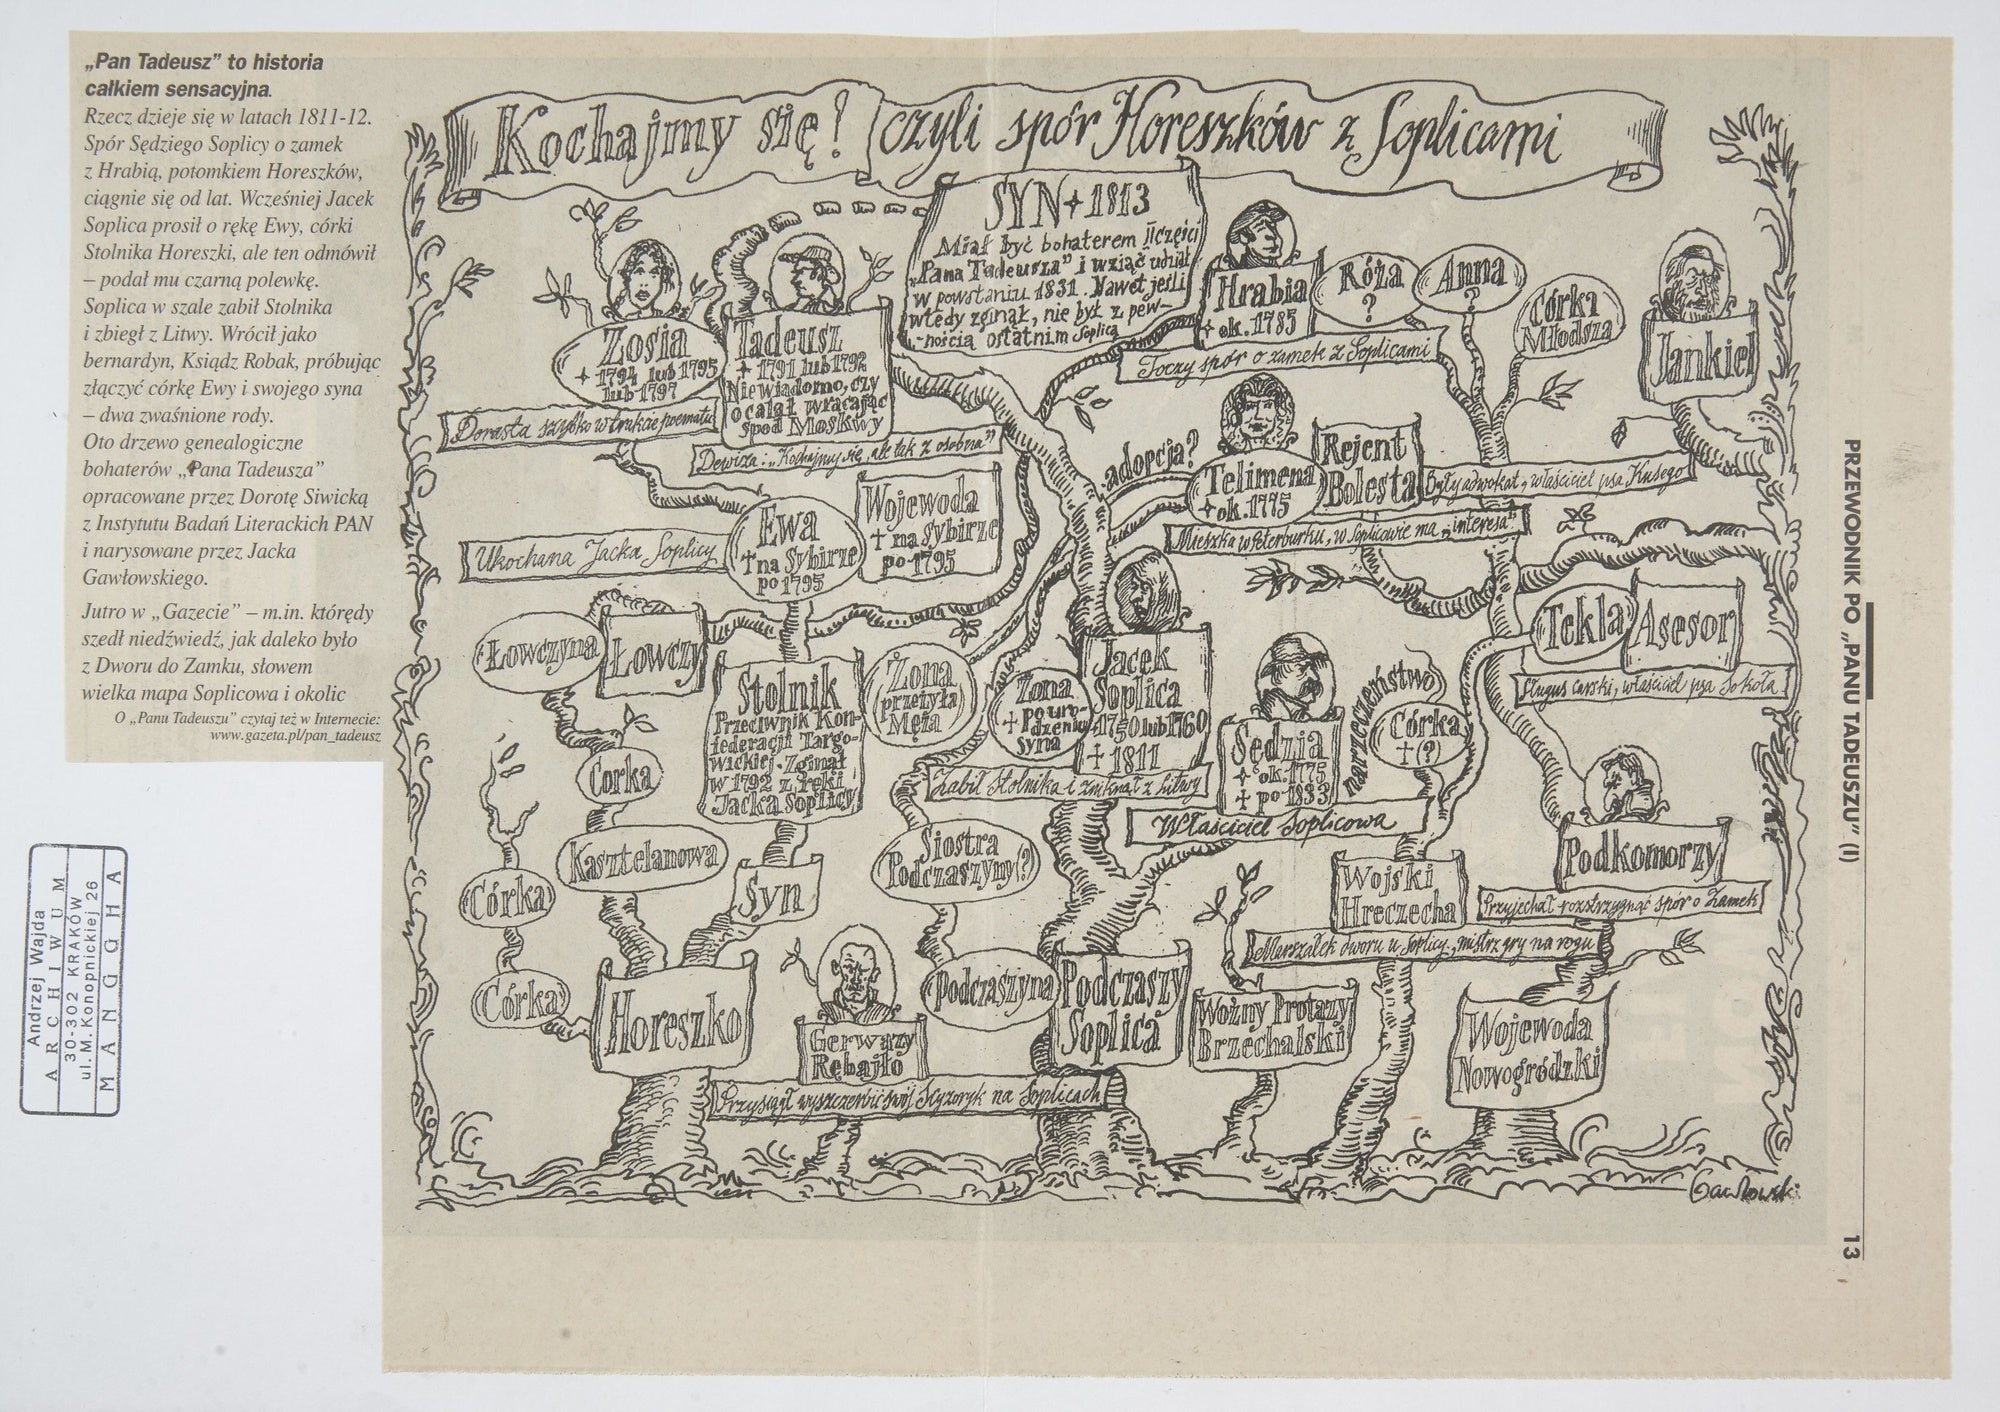 „Pan Tadeusz” to historia
całkiem sensacyjna.
Rzecz dzieje się w latach 1811-12.
Spór Sędziego Soplicy o zamek
z Hrabią, potomkiem Horeszków,
ciągnie się od lat. Wcześniej Jacek
Soplica prosił o rękę Ewy, córki
Stolnika Horeszki, ale ten odmówił
– podał mu czarną polewkę.
Soplica w szale zabił Stolnika
i zbiegł z Litwy. Wrócił jako
bernardyn, Ksiądz Robak, próbując
złączyć córkę Ewy i swojego syna
– dwa zwaśnione rody.
Oto drzewo genealogiczne
bohaterów „Pana Tadeusza”
opracowane przez Dorotę Siwicką
z Instytutu Badań Literackich PAN
i narysowane przez Jacka
Gawłowskiego.
Jutro w „Gazecie” – m.in. którędy
szedł niedźwiedź, jak daleko było
z Dworu do Zamku, słowem
wielka mapa Soplicowa i okolic
O „Panu Tadeuszu” czytaj też w Internecie:
www.gazeta.pl/pan_tadeusz
Kochajmy się! czyli spór Horeszków z Soplicami
SYN + 1813
Miał być bohaterem II części
„Pana Tadeusza” i wziąć udział
w powstaniu 1831. Nawet jeśli
wtedy zginął, nie był z pew-
-nością ostatnim Soplicą
Zosia
+ 1794 lub 1795
lub 1797
Dorasta szybko w trakcie poematu
Tadeusz
+ 1791 lub 1792
Nie wiadomo, czy
ocalał wracając
spod Moskwy
Dewiza: „Kochajmy się, ale tak z osobna”
Hrabia
+ ok. 1785
Toczy spór o zamek z Soplicami
Róża
?
Anna
?
Córka
Młodsza
Jankiel
adopcja?
Telimena
+ ok. 1775
Mieszka w Peterburku, w Soplicowie ma „interesa”
Rejent
Bolesta
Były adwokat, właściciel psa Kusego
Ewa
† na Sybirze
po 1795
Ukochana Jacka Soplicy
Wojewoda
† na Sybirze
po 1795
Łowczyna
Łowczy
Stolnik
Przeciwnik Kon-
federacji Targo-
wickiej. Zginął
w 1792 z ręki
Jacka Soplicy
Żona
przeżyła
Męża
Żona
† po uro-
dzeniu
syna
Jacek
Soplica
+ 1750 lub 1760
† 1811
Zabił Stolnika i zniknął z Litwy
Sędzia
+ ok. 1775
† po 1833
Właściciel Soplicowa
narzeczeństwo
Córka
† (?)
Tekla
Asesor
Sługus carski, właściciel psa Sokoła
Córka
Kasztelanowa
Syn
Córka
Córka
Horeszko
Siostra
Podczaszyny (?)
Podczaszyna
Podczaszy
Soplica
Gerwazy
Rębajło
Przysiągł wyszczerbić swój Scyzoryk na Soplicach
Woźny Protazy
Brzechalski
Wojski
Hreczecha
Marszałek dworu u Soplicy, mistrz gry na rogu
Podkomorzy
Przyjechał rozstrzygnąć spór o Zamek
Wojewoda
Nowogródzki
Gawłowski
PRZEWODNIK PO „PANU TADEUSZU” (I)
13
Andrzej Wajda
ARCHIWUM
30-302 KRAKÓW
ul. M. Konopnickiej 26
MANGGHA